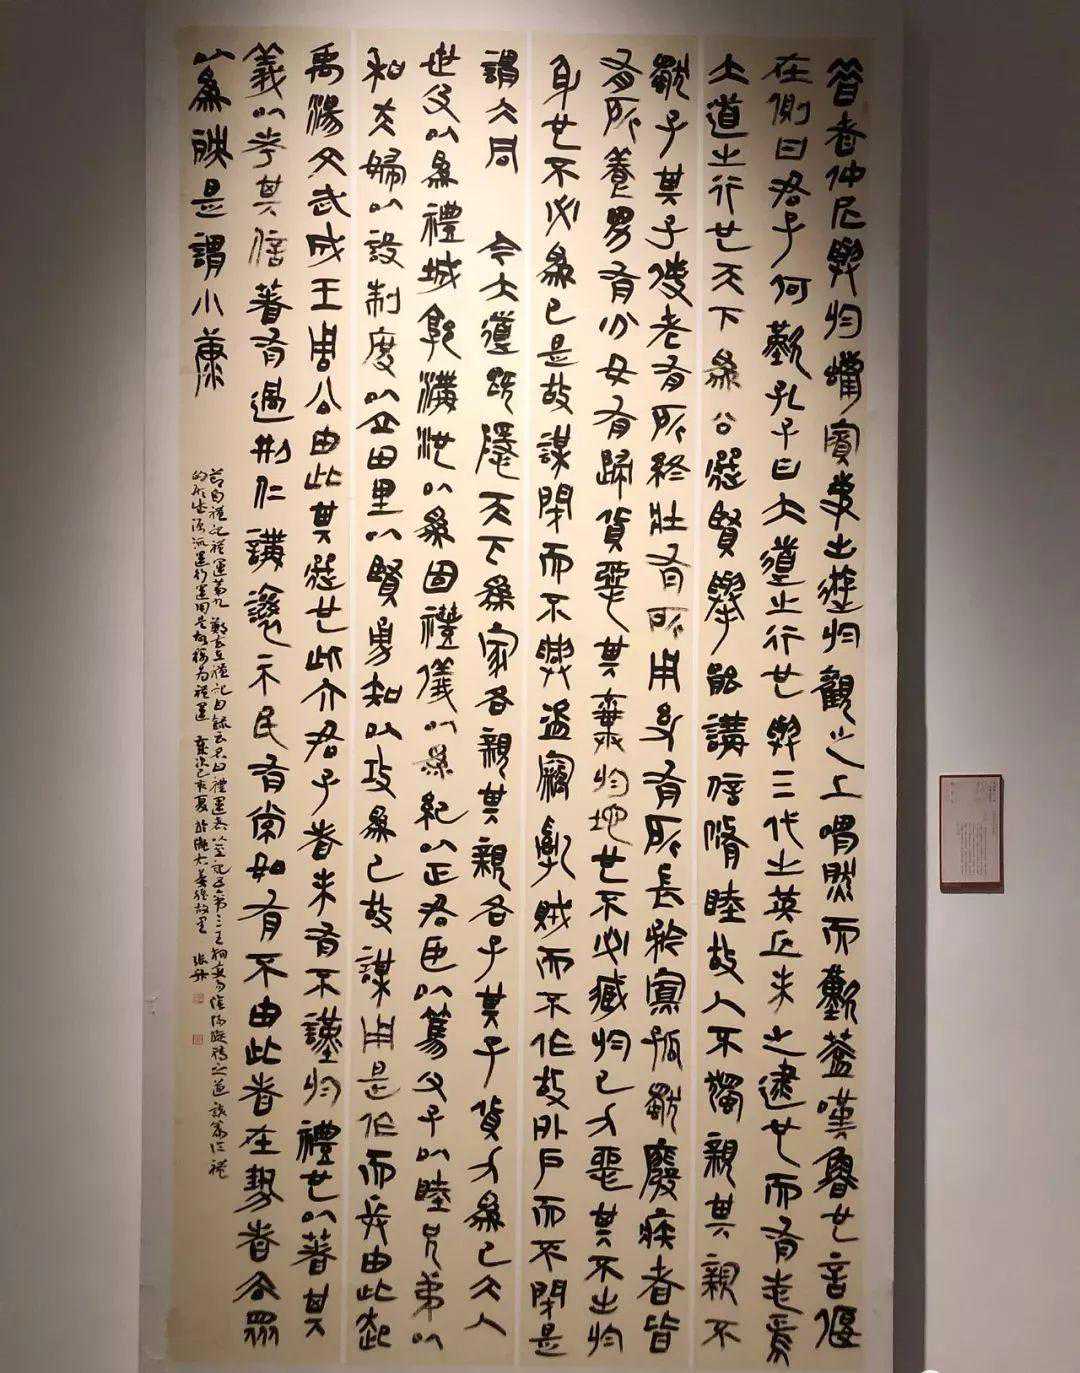 昔者仲尼與於蠟賓事出遊於觀之上喟然而歎蓋嘆魯也言偃
在側曰君子何歎孔子曰大道之行也與三代之英丘未之逮也而有志焉
大道之行也天下為公選賢舉能講信脩睦故人不獨親其親不
獨子其子使老有所終壯有所用幼有所長矜寡孤獨廢疾者皆
有所養男有分女有歸貨惡其棄於地也不必藏於己力惡其不出於
身也不必為己是故謀閉而不興盜竊亂賊而不作故外戶而不閉是
謂大同 今大道既隱天下為家各親其親各子其子貨力為己大人
世及以為禮城郭溝池以為固禮儀以為紀以正君臣以篤父子以睦兄弟以
和夫婦以設制度以立田里以賢勇知以功為己故謀用是作而兵由此起
禹湯文武成王周公由此其選也此六君子者未有不謹於禮也以著其
義以考其信著有過刑仁講讓示民有常如有不由此者在勢者去眾
以為殃是謂小康
節自禮記禮運第九